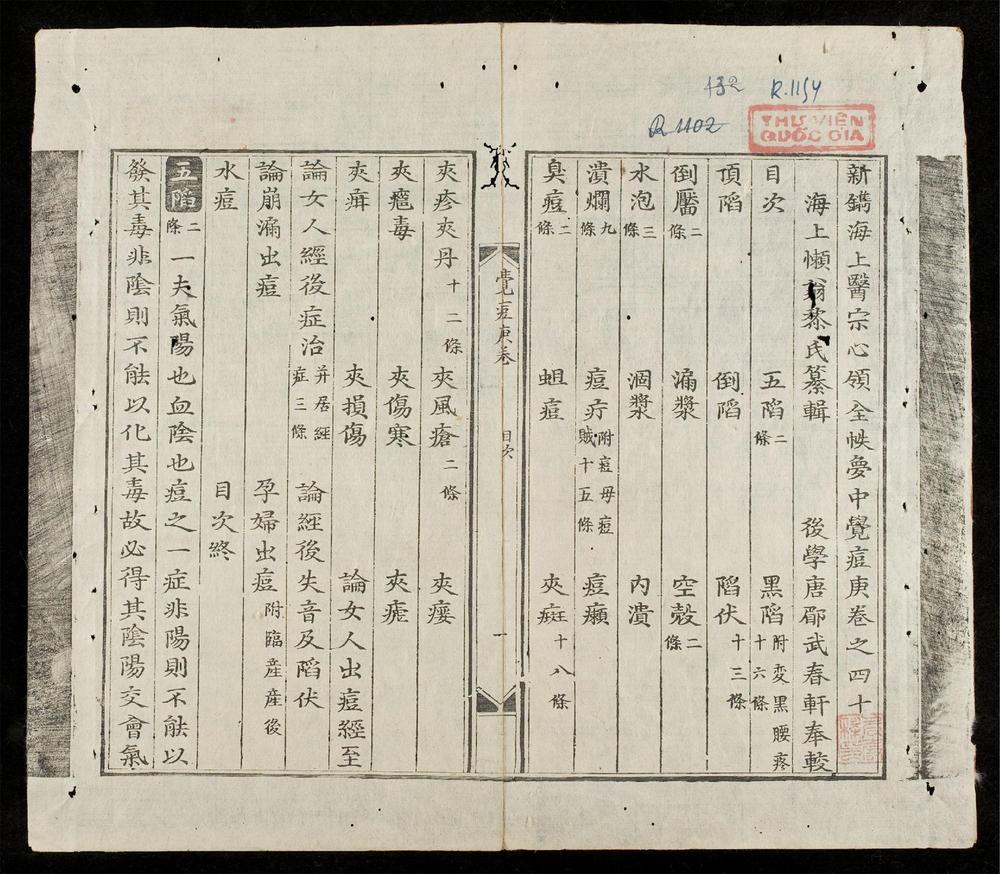 132
R.1154
R 1102
THƯ VIỆN
QUỐC GIA
新鐫海上醫宗心領全帙夢中覺痘庚卷之四十
海上懶翁黎氏纂輯 後學唐郿武春軒奉較
目次 五陷二條 黑陷附变黑腰疼十六條
頂陷 倒陷 陷伏十三條
倒靨二條 漏漿 空殼二條
水泡三條 涸漿 内潰
潰爛九條 痘疔附痘母痘賊十五條 痘癩
臭痘二條 蛆痘 夾𤴼十八條
覺痘庚卷
目次
一
夾疹夾丹十二條 夾風瘡二條 夾痿
夾癍毒 夾傷寒 夾瘧
夾癖 夾損傷 論女人出痘經至
論女人經後症治并居經症三條 論經後失音及陷伏
論崩漏出痘 孕婦出痘附臨産産後
水痘 目次終
五陷二條 一夫氣陽也血陰也痘之一症非陽則不能以
發其毒非陰則不能以化其毒故必得其陰陽交會氣